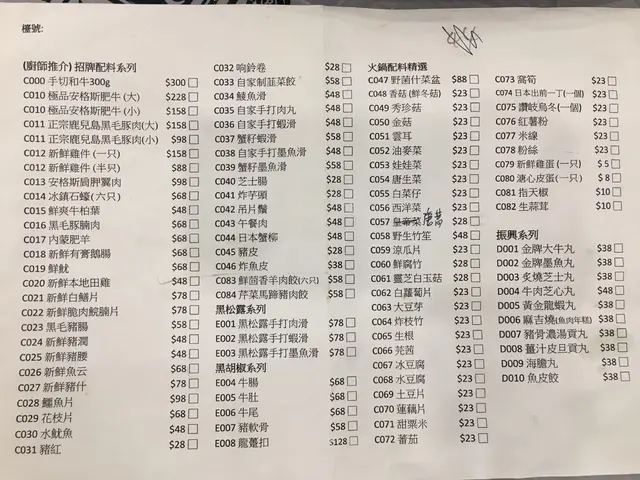 檯號:
(廚師推介) 招牌配料系列
C000 手切和牛300g $300
C010 極品安格斯肥牛 (大) $228
C010 極品安格斯肥牛 (小) $158
C011 正宗鹿兒島黑毛豚肉(大) $158
C011 正宗鹿兒島黑毛豚肉(小) $98
C012 新鮮雞件 (一只) $158
C012 新鮮雞件 (半只) $88
C013 安格斯肩胛翼肉 $98
C014 冰鎮石蠔(六只) $68
C015 鮮爽牛柏葉 $48
C016 黑毛豚腩肉 $68
C017 內蒙肥羊 $68
C018 新鮮有膏鵝腸 $68
C019 鮮魷 $68
C020 新鮮本地田雞 $48
C021 新鮮白鱔片 $78
C022 新鮮脆肉鯇腩片 $78
C023 黑毛豬腸 $58
C024 新鮮豬潤 $48
C025 新鮮豬腰 $48
C026 新鮮魚云 $68
C027 新鮮豬什 $78
C028 鱷魚片 $98
C029 花枝片 $68
C030 水魷魚 $48
C031 豬紅 $28
C032 响鈴卷 $28
C033 自家制韮菜餃 $58
C034 鯪魚滑 $48
C035 自家手打肉丸 $48
C036 自家手打蝦滑 $48
C037 蟹籽蝦滑 $58
C038 自家手打墨魚滑 $48
C039 蟹籽墨魚滑 $58
C040 芝士腸 $28
C041 炸芋頭 $28
C042 吊片鬚 $48
C043 午餐肉 $48
C044 日本蟹柳 $48
C045 豬皮 $28
C046 炸魚皮 $38
C083 鮮茴香羊肉餃(六只) $58
C084 芹菜馬蹄豬肉餃 $58
黑松露系列
E001 黑松露手打肉滑 $78
E002 黑松露手打蝦滑 $78
E003 黑松露手打墨魚滑 $78
黑胡椒系列
E004 牛腸 $68
E005 牛肚 $68
E006 牛尾 $68
E007 豬軟骨 $58
E008 龍躉扣 $128
火鍋配料精選
C047 野菌什菜盆 $88
C048 香菇 (鮮冬菇) $23
C049 秀珍菇 $23
C050 金菇 $23
C051 雲耳 $23
C052 油麥菜 $23
C053 娃娃菜 $23
C054 唐生菜 $23
C055 白菜仔 $23
C056 西洋菜 $23
C057 皇帝菜 $28
C058 野生竹笙 $48
C059 涼瓜片 $23
C060 鮮腐竹 $28
C061 靈芝白玉菇 $28
C062 白蘿蔔片 $23
C063 大豆芽 $23
C064 炸枝竹 $23
C065 生根 $23
C066 芫茜 $23
C067 冰豆腐 $23
C068 水豆腐 $23
C069 土豆片 $23
C070 蓮藕片 $23
C071 甜粟米 $23
C072 蕃茄 $23
C073 窩筍 $23
C074 日本出前一丁(一個) $23
C075 讚岐烏冬(一個) $23
C076 紅薯粉 $23
C077 米線 $23
C078 粉絲 $23
C079 新鮮雞蛋(一只) $ 5
C080 溏心皮蛋(一只) $ 8
C081 指天椒 $10
C082 生蒜茸 $10
振興系列
D001 金牌大牛丸 $38
D002 金牌墨魚丸 $38
D003 炙燒芝士丸 $38
D004 牛肉芝心丸 $48
D005 黃金龍蝦丸 $38
D006 麻吉燒(魚肉年糕) $38
D007 豬骨濃湯貢丸 $38
D008 薑汁皮旦貢丸 $38
D009 海膽丸 $38
D010 魚皮餃 $38